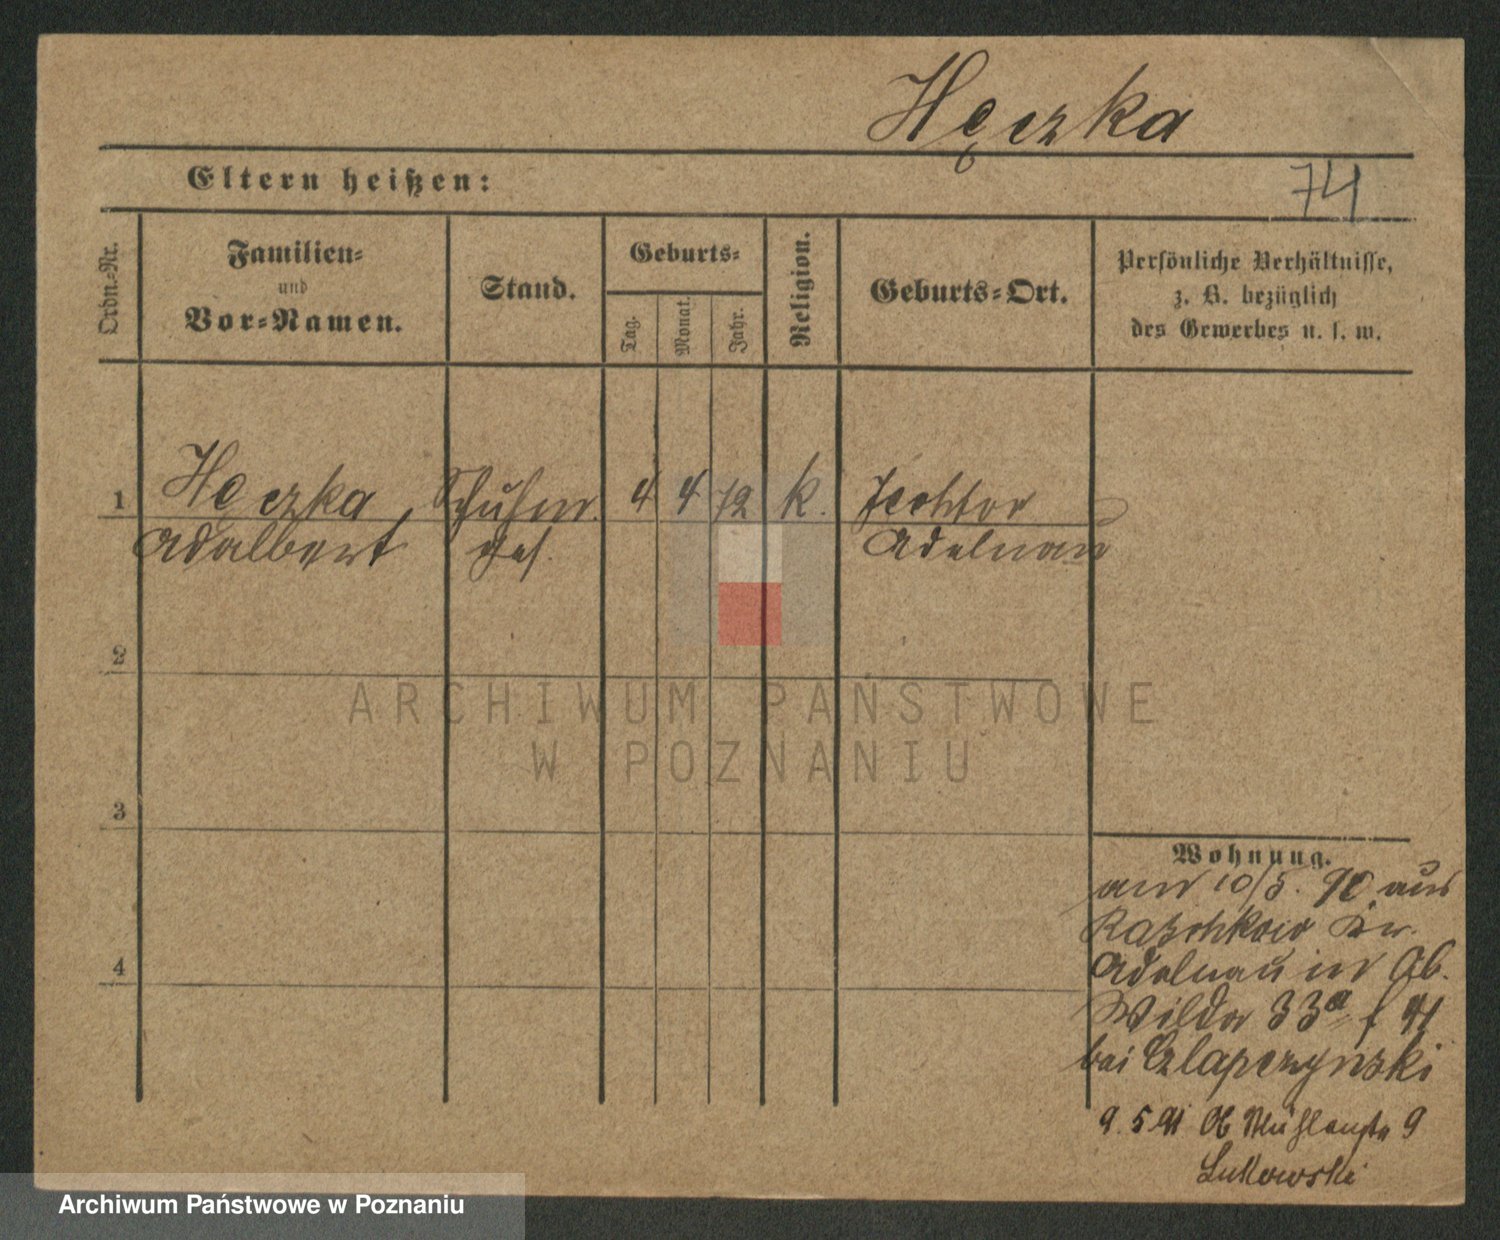 Hęczka
Eltern heißen:
74
Ordn.-Nr.
Familien-
und
Vor-Namen.
Stand.
Geburts-
Tag.
Monat.
Jahr.
Religion.
Geburts-Ort.
Persönliche Verhältnisse,
z. B. bezüglich
des Gewerbes u. s. w.
1 Heczka, Schuhm. 4 4 72 k.
Adalbert ges. Adelnau
2
ARCHIWUM PAŃSTWOWE
W POZNANIU
3
4
Wohnung.
am 10/5. 90 aus
Raschkow Kr.
Adelnau in Ob.
Wilda 33a f 41
bei Czlapczynski
9. 5 91 Mühlenstr 9
Lukowski
Archiwum Państwowe w Poznaniu